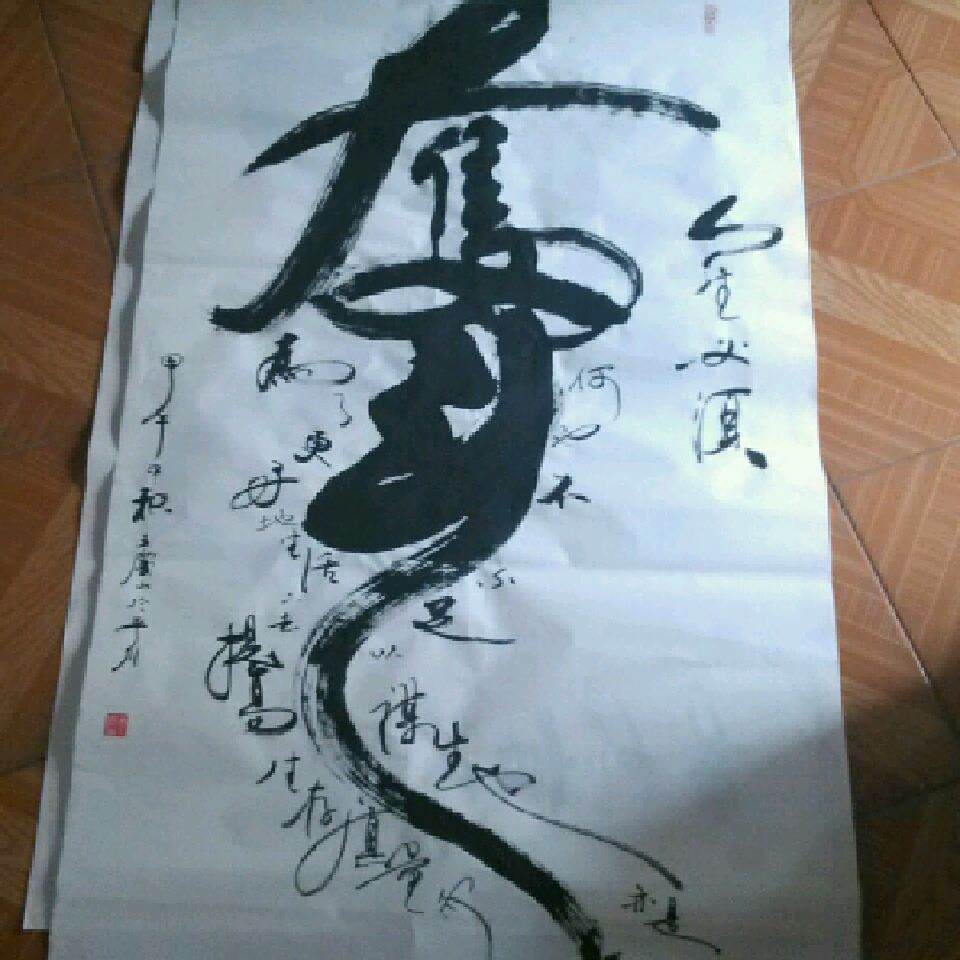 奪
人生必須
何也不
不足以謀生也
亦是
為了更好地生活
去提高
生存質量
甲午年秋